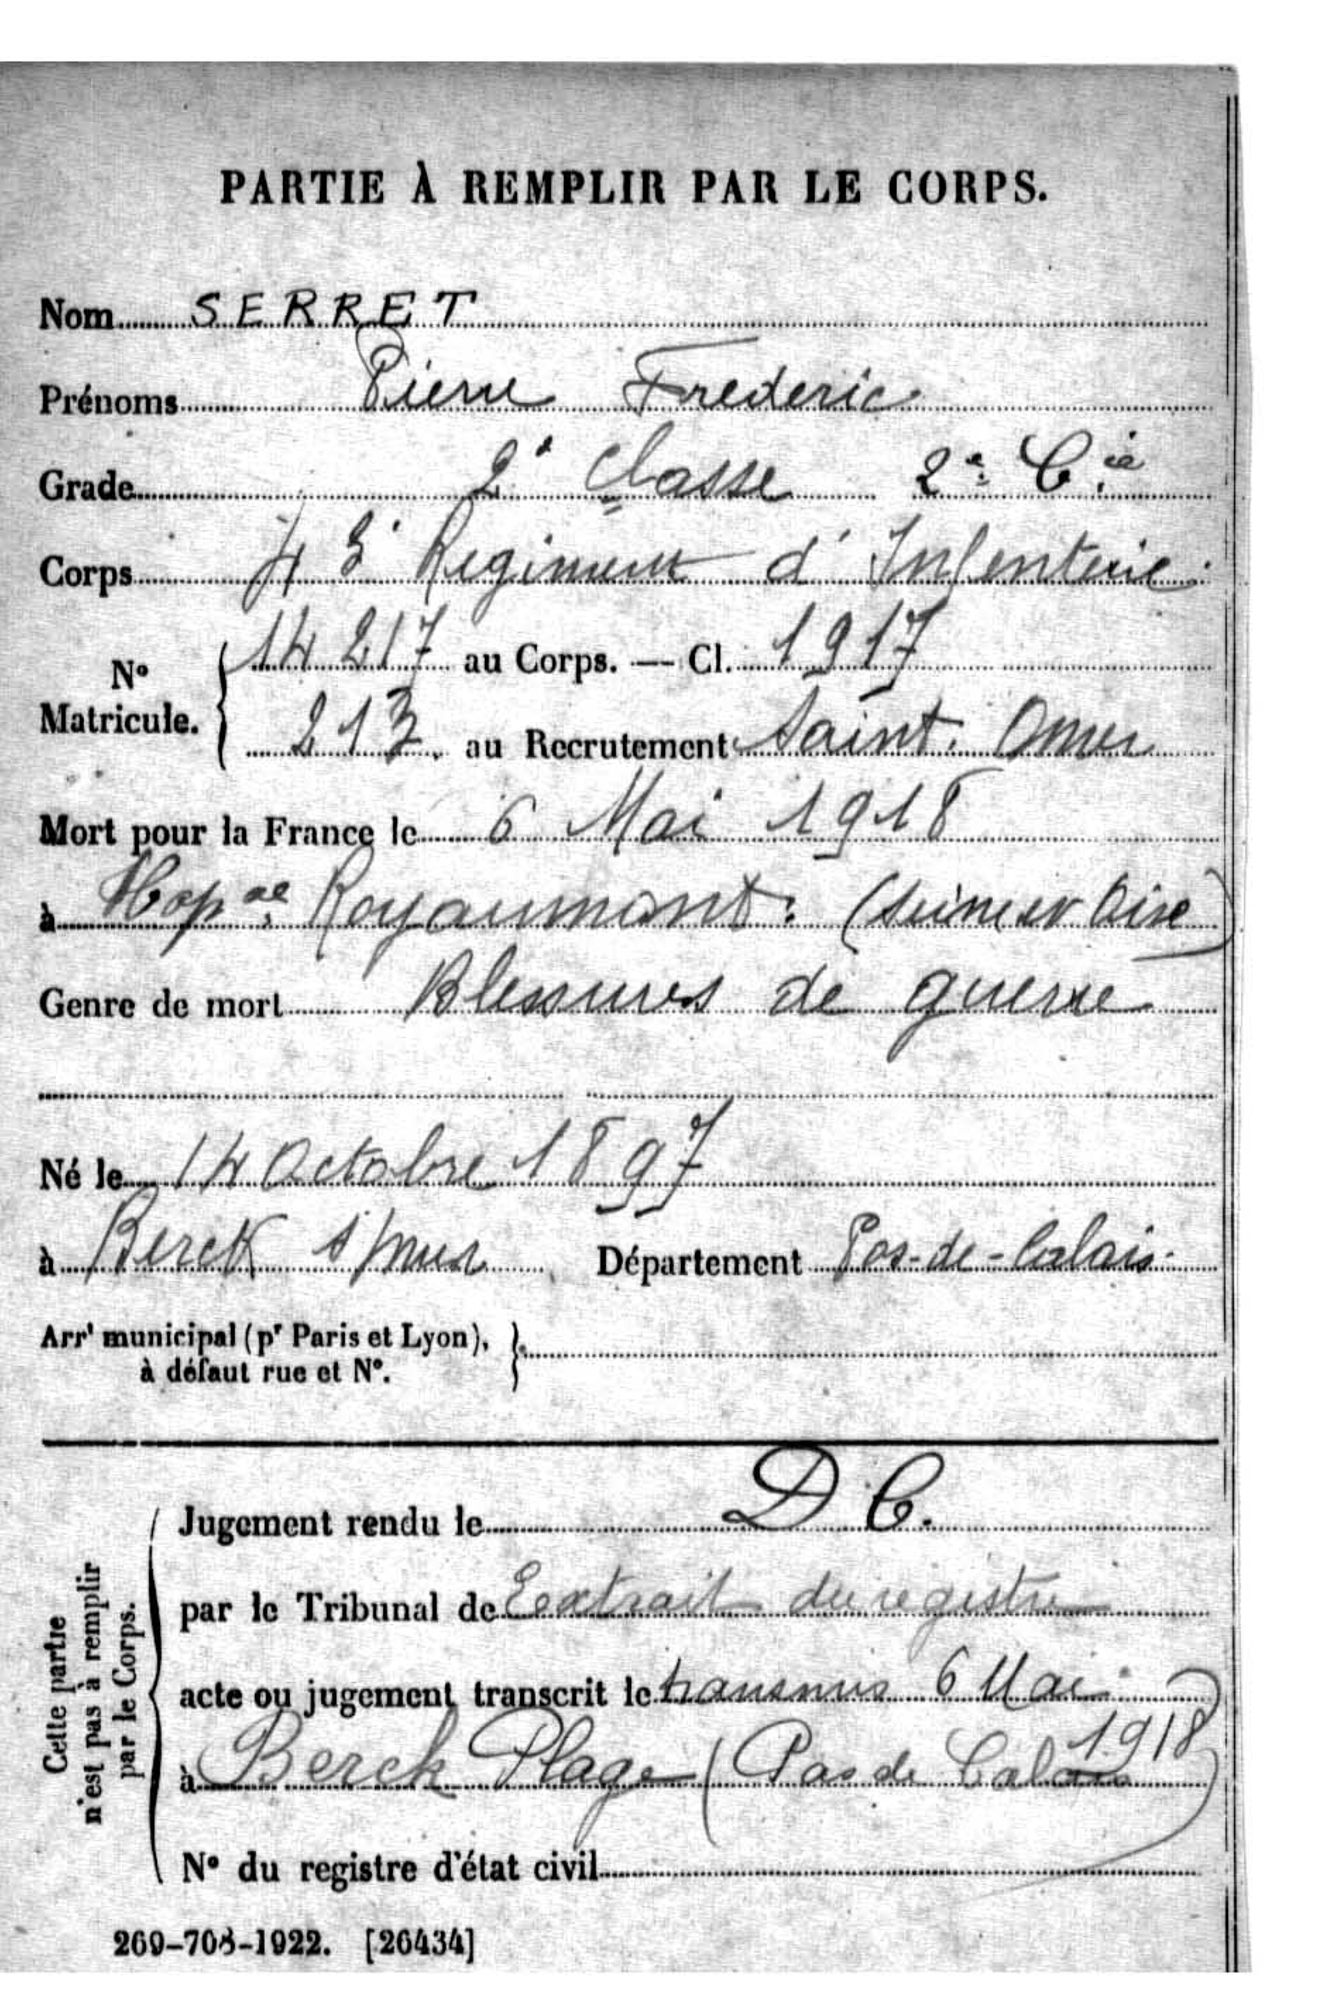 PARTIE À REMPLIR PAR LE CORPS.
Nom SERRET
Prénoms Pierre Frederic
Grade 2e classe 2e Cie
Corps 43e Regiment d'Infenterie
No Matricule. { 14217 au Corps. — Cl. 1917
213 au Recrutement Saint. Omer
Mort pour la France le 6 Mai 1918
à Hopal Royaumont. (Seine et Oise)
Genre de mort Blessures de guerre
Né le 14 Octobre 1897
à Berck s/mer Département Pas-de-Calais.
Arrt municipal (pr Paris et Lyon), }
à défaut rue et No.
Cette partie n'est pas à remplir par le Corps.
Jugement rendu le D C.
par le Tribunal de Extrait du registre
acte ou jugement transcrit le transmis 6 Mai 1918
à Berck Plage (Pas de Calais)
No du registre d'état civil
269-708-1922. [26434]